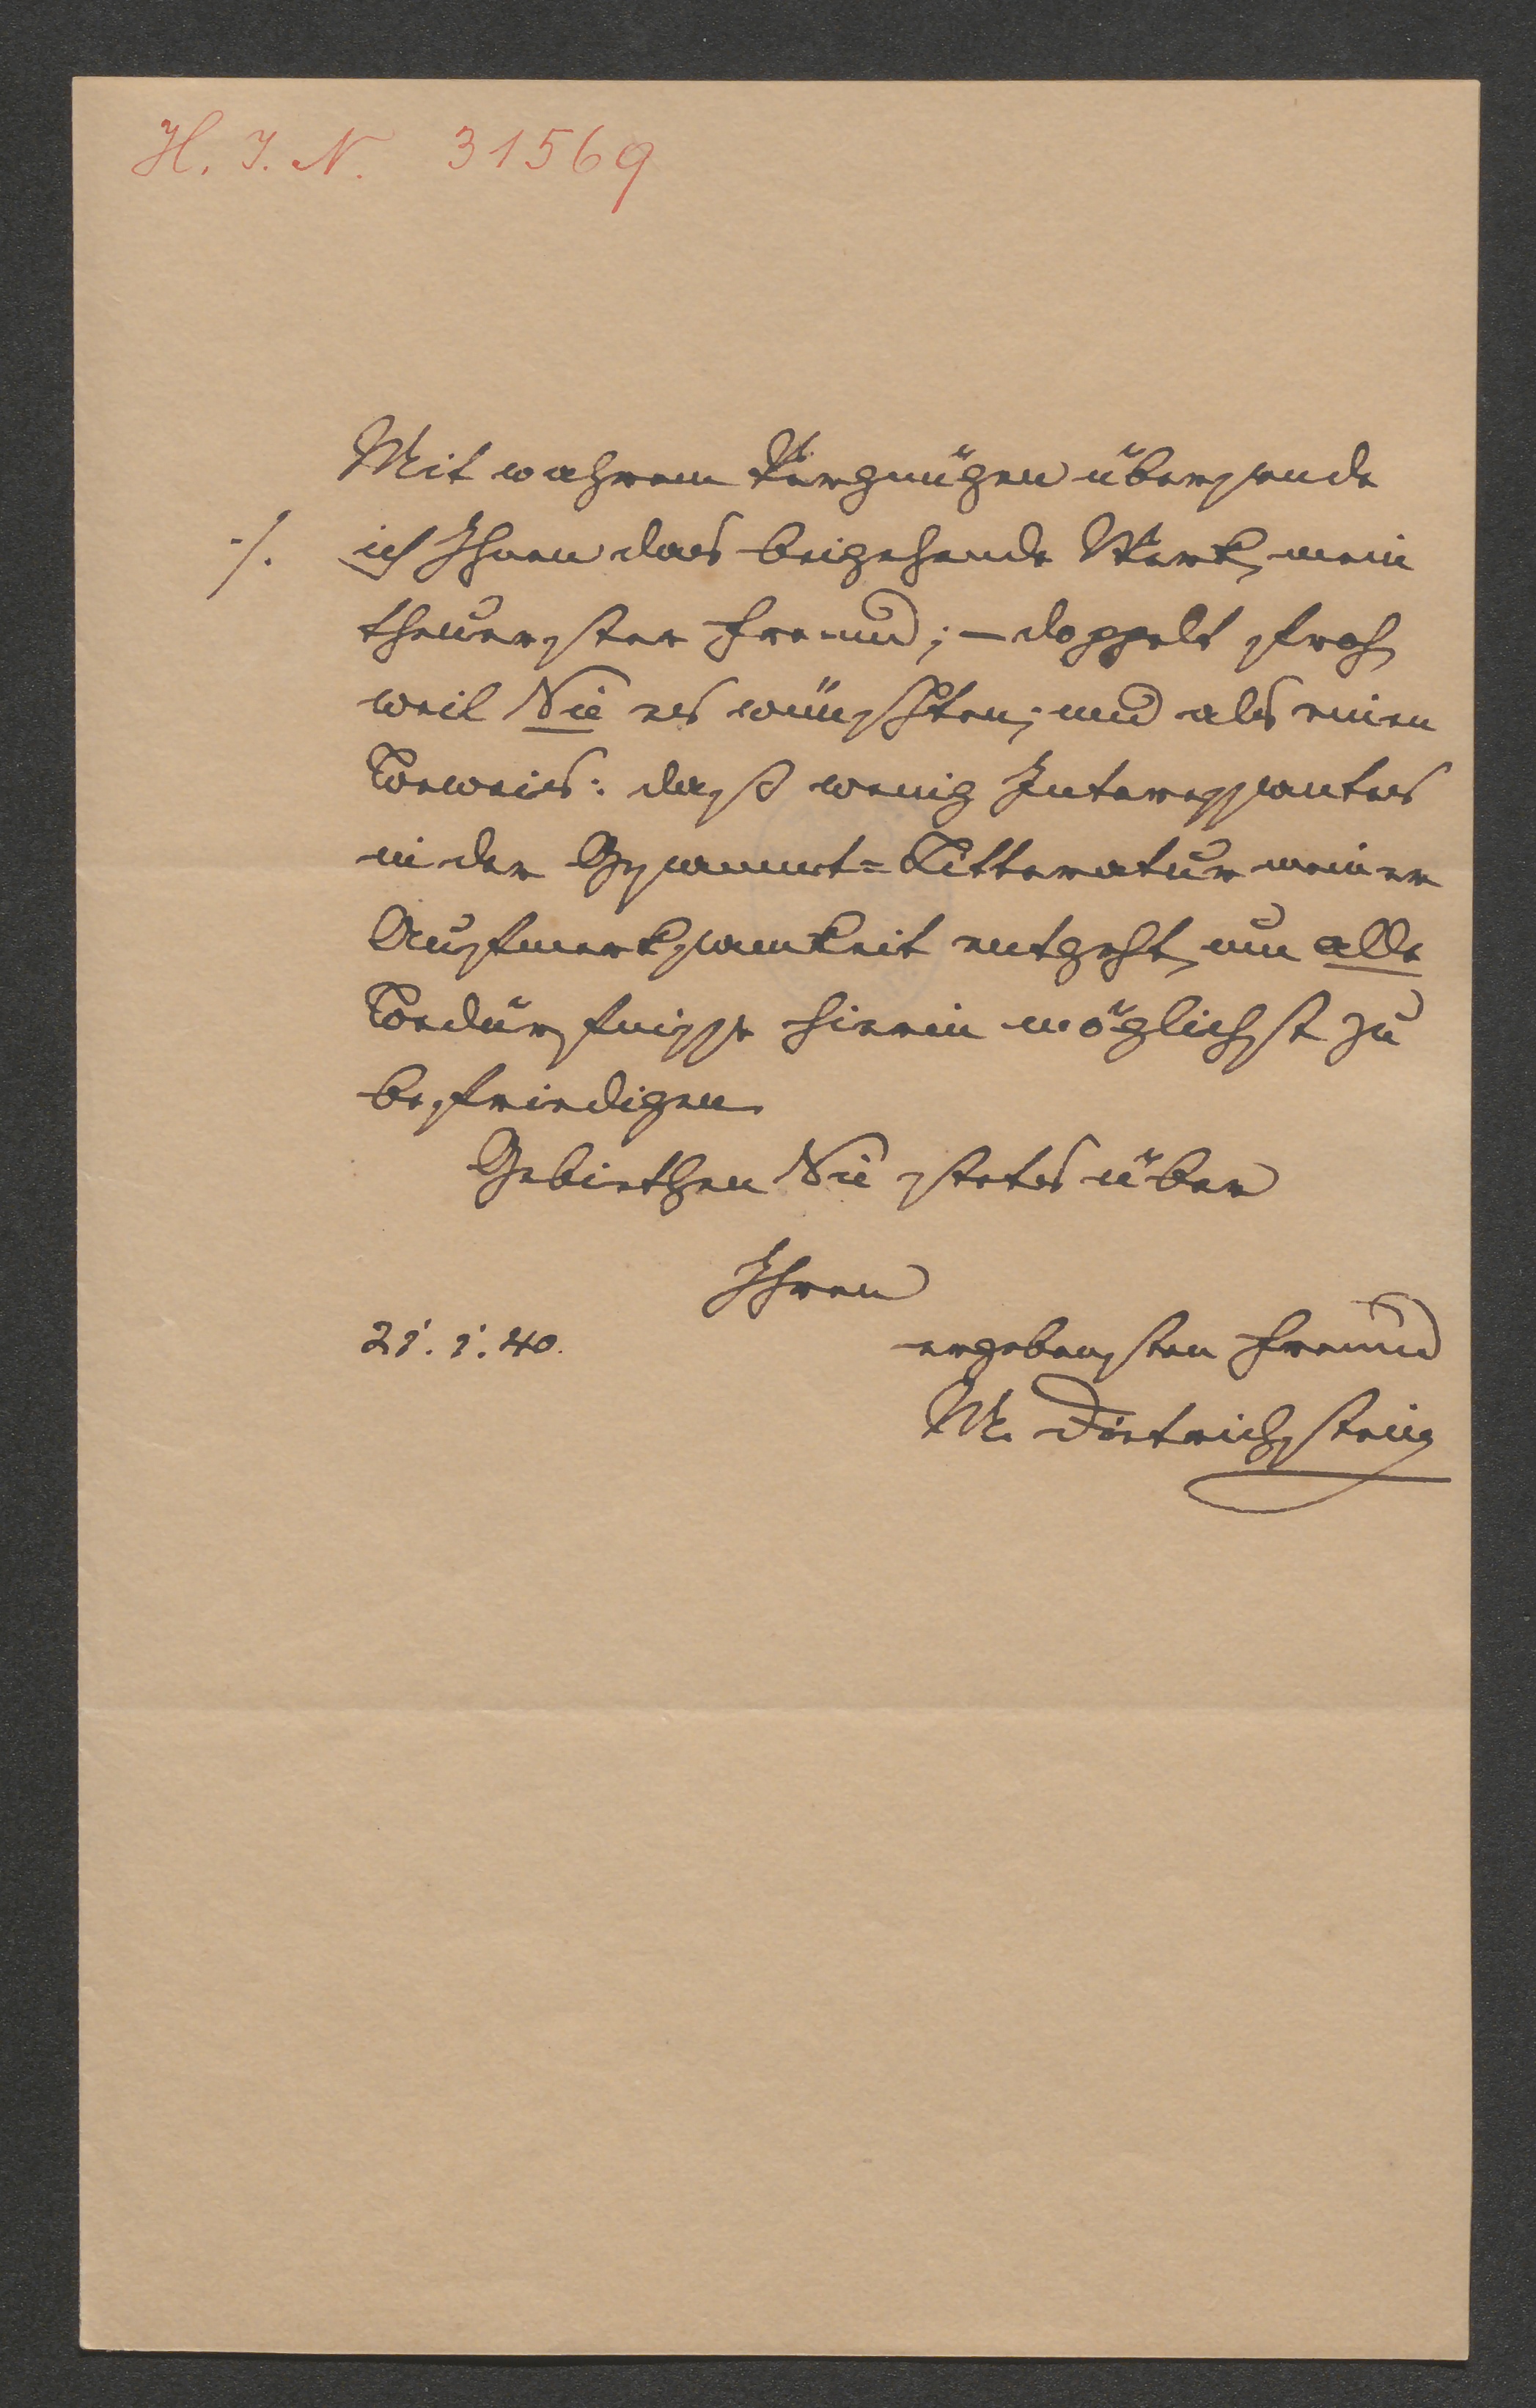 H. I. N. 31569
Mit wahrem Vergnügen übersende
./. ich Ihnen das beigehende Werk, mein
theuerster Freund; – doppelt froh,
weil Sie es wünschten; und als einen
Beweis: daß wenig Interessantes
in der Gesammt=Litteratur meiner
Aufmerksamkeit entgeht, um alle
Bedürfnisse hierin möglichst zu
befriedigen.
Gebiethen Sie stets über
Ihren
21. 1. 40. ergebensten Freund
M. Dietrichstein